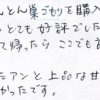 んとん巣ごもりを購入
とても好評でした
て帰ったら ここでもあ
たアンと上品な甘
かったです。